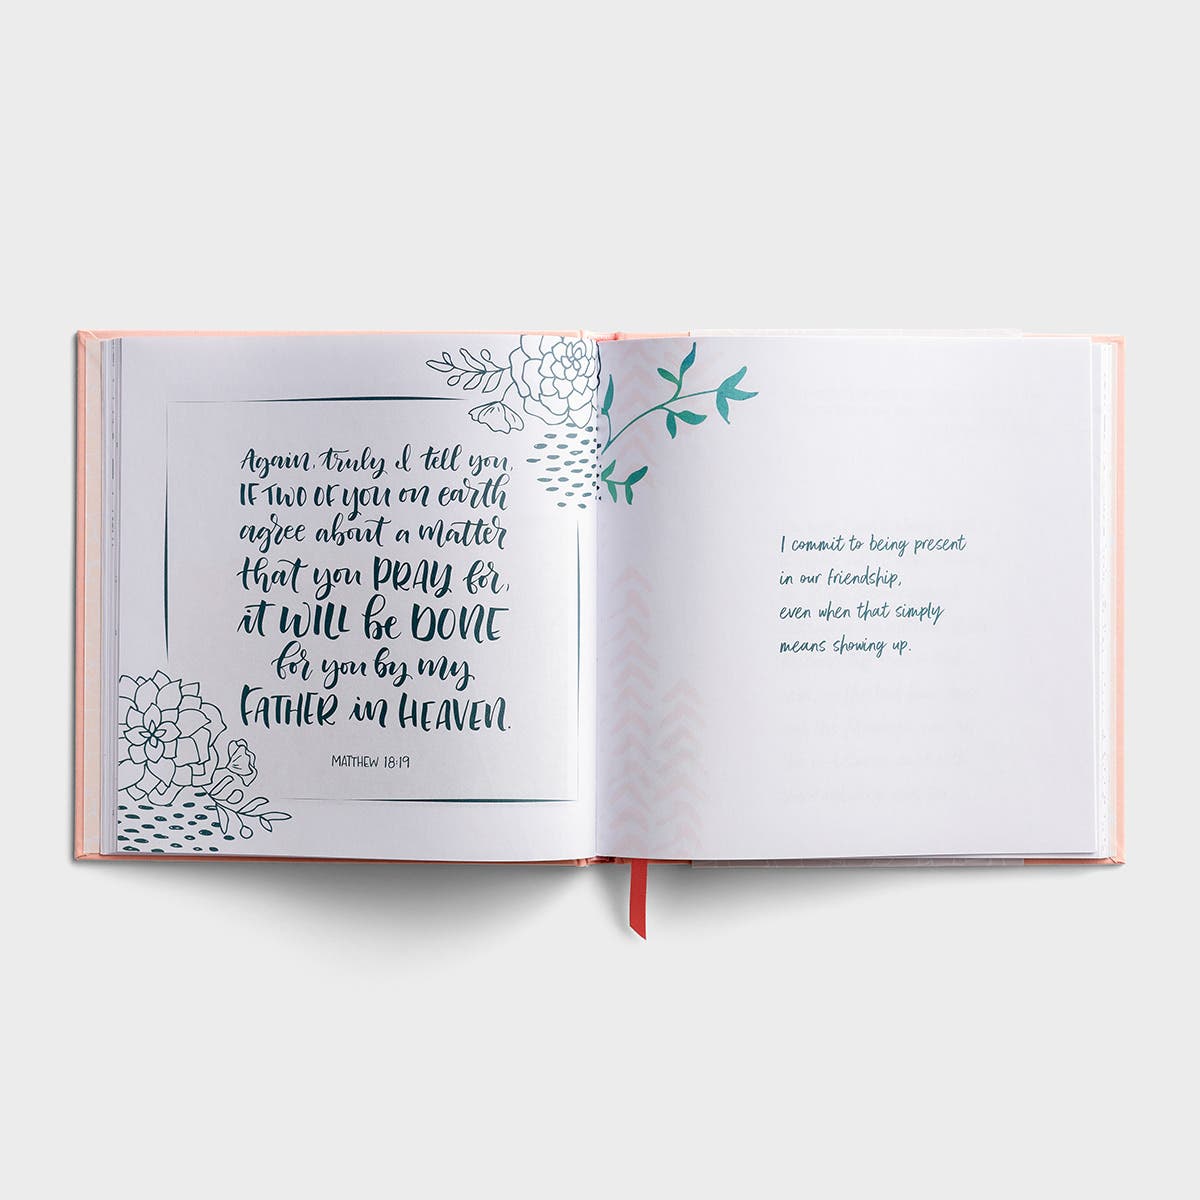 Again, truly I tell you,
IF TWO OF you on earth
agree about a matter
that you PRAY for,
it WILL be DONE
for you by my
FATHER in HEAVEN.
MATTHEW 18:19
I commit to being present
in our friendship,
even when that simply
means showing up.